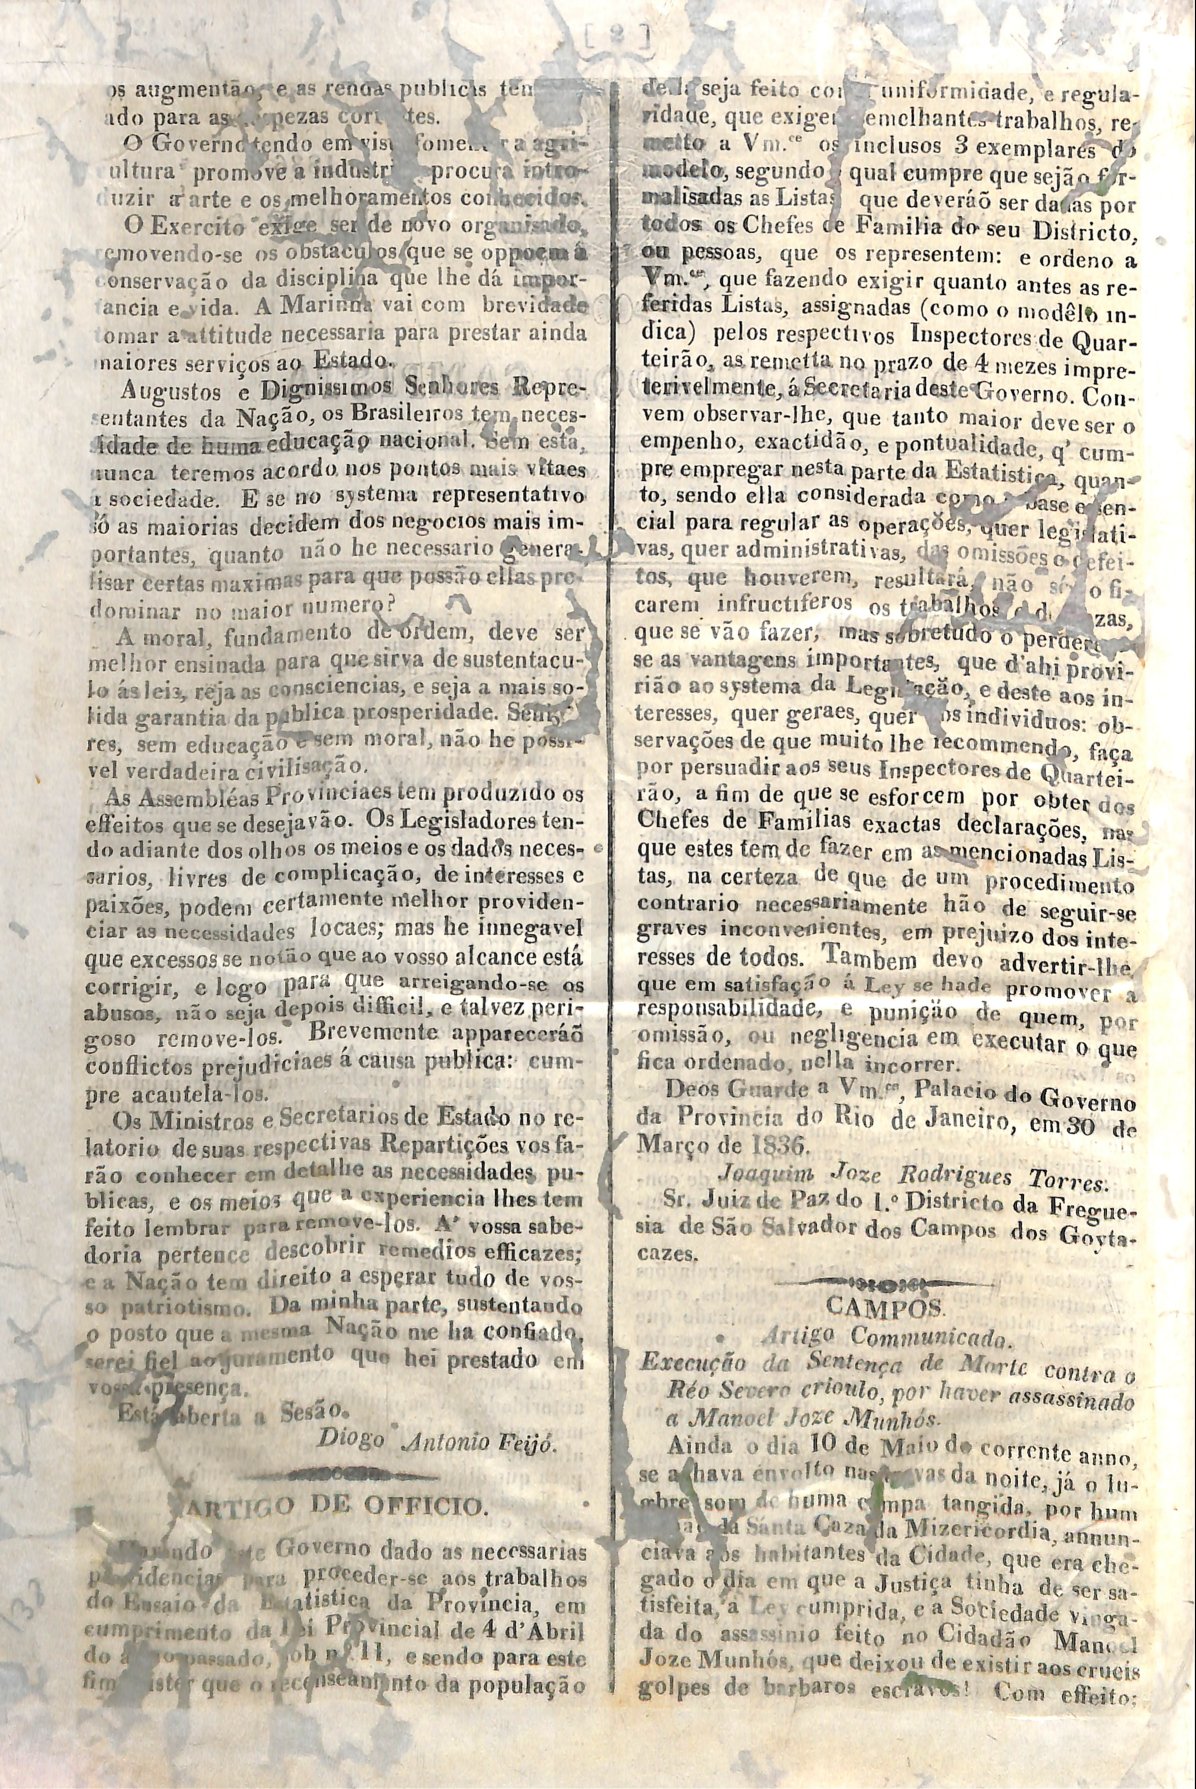 [ 2 ]
os augmentão, e as rendas publicas
ado para as correntes.
O Governo tendo em vista fomentar a agri-
cultura promove a industria, procura intro-
duzir a arte e os melhoramentos conhecidos.
O Exercito exige ser de novo organisado,
removendo-se os obstaculos que se oppoem á
conservação da disciplina que lhe dá impor-
tancia e vida. A Marinha vai com brevidade
tomar a attitude necessaria para prestar ainda
maiores serviços ao Estado.
Augustos e Dignissimos Senhores Repre-
sentantes da Nação, os Brasileiros tem neces-
sidade de huma educação nacional. Sem esta,
nunca teremos acordo nos pontos mais vitaes
á sociedade. E se no systema representativo
só as maiorias decidem dos negocios mais im-
portantes, quanto não he necessario genera-
lisar certas maximas para que possão ellas pre-
dominar no maior numero?
A moral, fundamento de ordem, deve ser
melhor ensinada para que sirva de sustentacu-
lo ás leis, reja as consciencias, e seja a mais so-
lida garantia da publica prosperidade. Senho-
res, sem educação e sem moral, não he possi-
vel verdadeira civilisação.
As Assembléas Provinciaes tem produzido os
effeitos que se desejavão. Os Legisladores ten-
do adiante dos olhos os meios e os dados neces-
sarios, livres de complicação, de interesses e
paixões, podem certamente melhor providen-
ciar as necessidades locaes; mas he innegavel
que excessos se notão que ao vosso alcance está
corrigir, e logo para que arreigando-se os
abusos, não seja depois difficil, e talvez peri-
goso remove-los. Brevemente apparecerãõ
conflictos prejudiciaes á causa publica: cum-
pre acautela-los.
Os Ministros e Secretarios de Estado no re-
latorio de suas respectivas Repartições vos fa-
rão conhecer em detalhe as necessidades pu-
blicas, e os meios que a experiencia lhes tem
feito lembrar para remove-los. A' vossa sabe-
doria pertence descobrir remedios efficazes;
e a Nação tem direito a esperar tudo de vos-
so patriotismo. Da minha parte, sustentando
o posto que a mesma Nação me ha confiado,
serei fiel ao juramento que hei prestado em
vossa presença.
Está aberta a Sesão.
Diogo Antonio Feijó.
ARTIGO DE OFFICIO.
este Governo dado as necessarias
providencias para proceder-se aos trabalhos
do Ensaio da Estatistica da Provincia, em
cumprimento da Lei Provincial de 4 d'Abril
do anno passado, sob n.º 11, e sendo para este
fim mister que o recenseamento da população
della seja feito com uniformidade, e regula-
ridade, que exigem semelhantes trabalhos, re-
metto a Vm.ce os inclusos 3 exemplares do
modelo, segundo o qual cumpre que sejão for-
malisadas as Listas que deveráõ ser dadas por
todos os Chefes de Familia do seu Districto,
ou pessoas, que os representem: e ordeno a
Vm.ce, que fazendo exigir quanto antes as re-
feridas Listas, assignadas (como o modêlo in-
dica) pelos respectivos Inspectores de Quar-
teirão, as remetta no prazo de 4 mezes impre-
terivelmente, á Secretaria deste Governo. Con-
vem observar-lhe, que tanto maior deve ser o
empenho, exactidão, e pontualidade, q' cum-
pre empregar nesta parte da Estatistica, quan-
to, sendo ella considerada como a base essen-
cial para regular as operações, quer legislati-
vas, quer administrativas, das omissões e defei-
tos, que houverem, resultará, não só o fi-
carem infructiferos os trabalhos,
que se vão fazer, mas sobretudo o perderem-
se as vantagens importantes, que d'ahi provi-
rião ao systema da Legislação, e deste aos in-
teresses, quer geraes, quer dos individuos: ob-
servações de que muito lhe recommendo, faça
por persuadir aos seus Inspectores de Quartei-
rão, a fim de que se esforcem por obter dos
Chefes de Familias exactas declarações, nas
que estes tem de fazer em as mencionadas Lis-
tas, na certeza de que de um procedimento
contrario necessariamente hão de seguir-se
graves inconvenientes, em prejuizo dos inte-
resses de todos. Tambem devo advertir-lhe,
que em satisfação á Ley se hade promover a
responsabilidade, e punição de quem, por
omissão, ou negligencia em executar o que
fica ordenado, nella incorrer.
Deos Guarde a Vm.ce, Palacio do Governo
da Provincia do Rio de Janeiro, em 30 de
Março de 1836.
Joaquim Joze Rodrigues Torres.
Sr. Juiz de Paz do 1.º Districto da Fregue-
sia de São Salvador dos Campos dos Goyta-
cazes.
CAMPOS.
Artigo Communicado.
Execução da Sentença de Morte contra o
Réo Severo crioulo, por haver assassinado
a Manoel Joze Munhós.
Ainda o dia 10 de Maio do corrente anno,
se achava envolto nas trevas da noite, já o lu-
gubre som de huma campa tangida, por hum
da Santa Caza da Misericordia, annun-
ciava aos habitantes da Cidade, que era che-
gado o dia em que a Justiça tinha de ser sa-
tisfeita, a Ley cumprida, e a Sociedade vinga-
da do assassinio feito no Cidadão Manoel
Joze Munhós, que deixou de existir aos crueis
golpes de barbaros escravos! Com effeito: